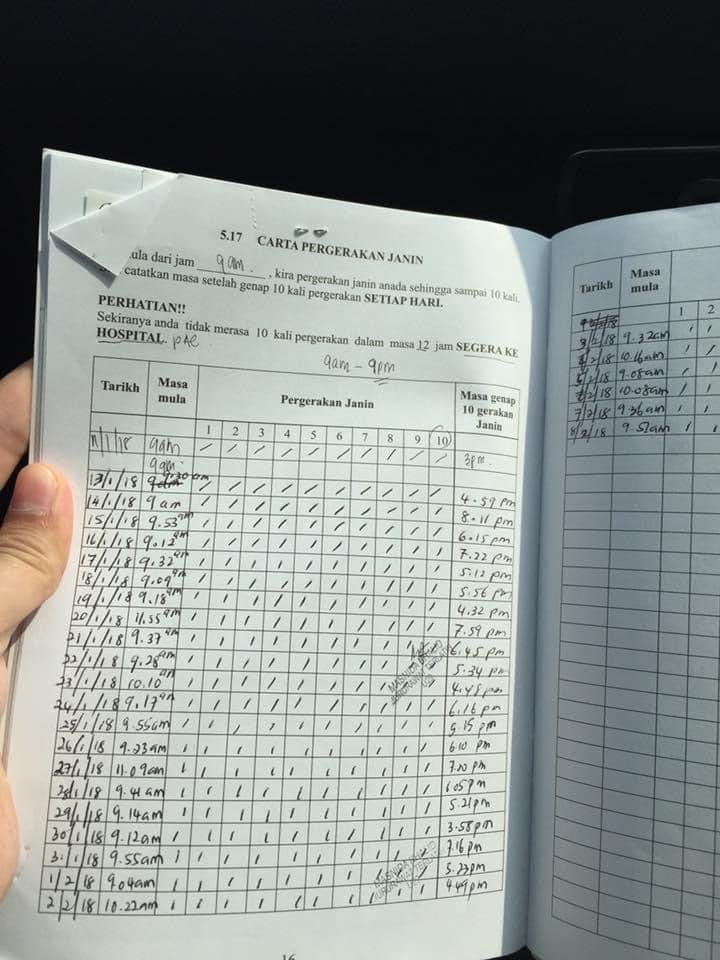 5.17 CARTA PERGERAKAN JANIN
ula dari jam 9 am. , kira pergerakan janin anada sehingga sampai 10 kali.
catatkan masa setelah genap 10 kali pergerakan SETIAP HARI.
PERHATIAN!!
Sekiranya anda tidak merasa 10 kali pergerakan dalam masa 12 jam SEGERA KE
HOSPITAL. PAC
9am - 9pm
Tarikh Masa mula Pergerakan Janin Masa genap 10 gerakan Janin
1 2 3 4 5 6 7 8 9 10
/1/18 9am / / / / / / / / / / 3pm.
9am.
13/1/18 9.30am / / / / / / / / / / 4.59 pm
14/1/18 9 am / / / / / / / / / / 8.11 pm
15/1/18 9.53am / / / / / / / / / / 6.15 pm
16/1/18 9.12am / / / / / / / / / / 7.22 pm
17/1/18 9.32am / / / / / / / / / / 5.12 pm
18/1/18 9.09am / / / / / / / / / / 5.56 pm
19/1/18 9.18am / / / / / / / / / / 4.32 pm
20/1/18 11.55am / / / / / / / / / / 7.59 pm
21/1/18 9.37am / / / / / / / / / / 6.45 pm
22/1/18 9.28am / / / / / / / / / / 5.34 pm
23/1/18 10.10am / / / / / / / / / / 4.48 pm
24/1/18 9.17am / / / / / / / / / / 6.16 pm
25/1/18 9.55am / / / / / / / / / / 9.15 pm
26/1/18 9.23am / / / / / / / / / / 6.10 pm
27/1/18 11.09am / / / / / / / / / / 7.20 pm
28/1/18 9.41am / / / / / / / / / / 6.05pm
29/1/18 9.14am / / / / / / / / / / 5.21pm
30/1/18 9.12am / / / / / / / / / / 3.58pm
31/1/18 9.55am / / / / / / / / / / 7.16 pm
1/2/18 9.04am / / / / / / / / / / 5.23pm
2/2/18 10.22am / / / / / / / / / / 4.49pm
16
Tarikh Masa mula
1 2
3/2/18 9.32am / /
/2/18 10.16am / /
5/2/18 9.08am / /
/2/18 10.08am / /
7/2/18 9.36am / /
8/2/18 9.51am / /